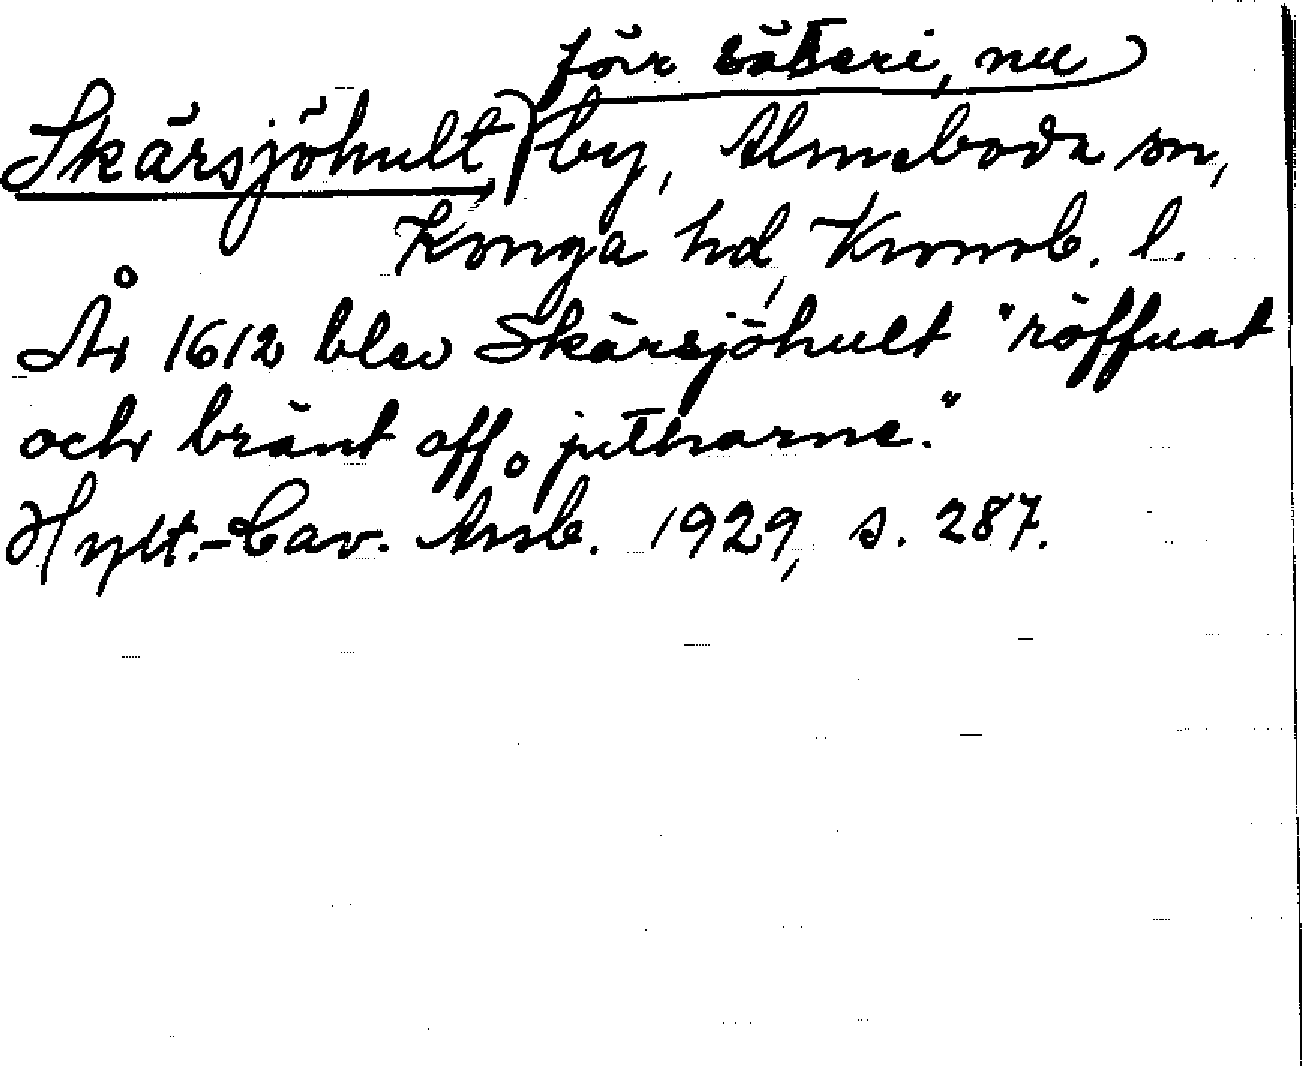 förr säteri, nu
Skärsjöhult, by, Almeboda sn,
Konga hd, Kronob. l.
År 1612 blev Skärsjöhult "röffuat
och bränt aff jutharne."
Hylt.-Cav. Årsb. 1929, s. 287.